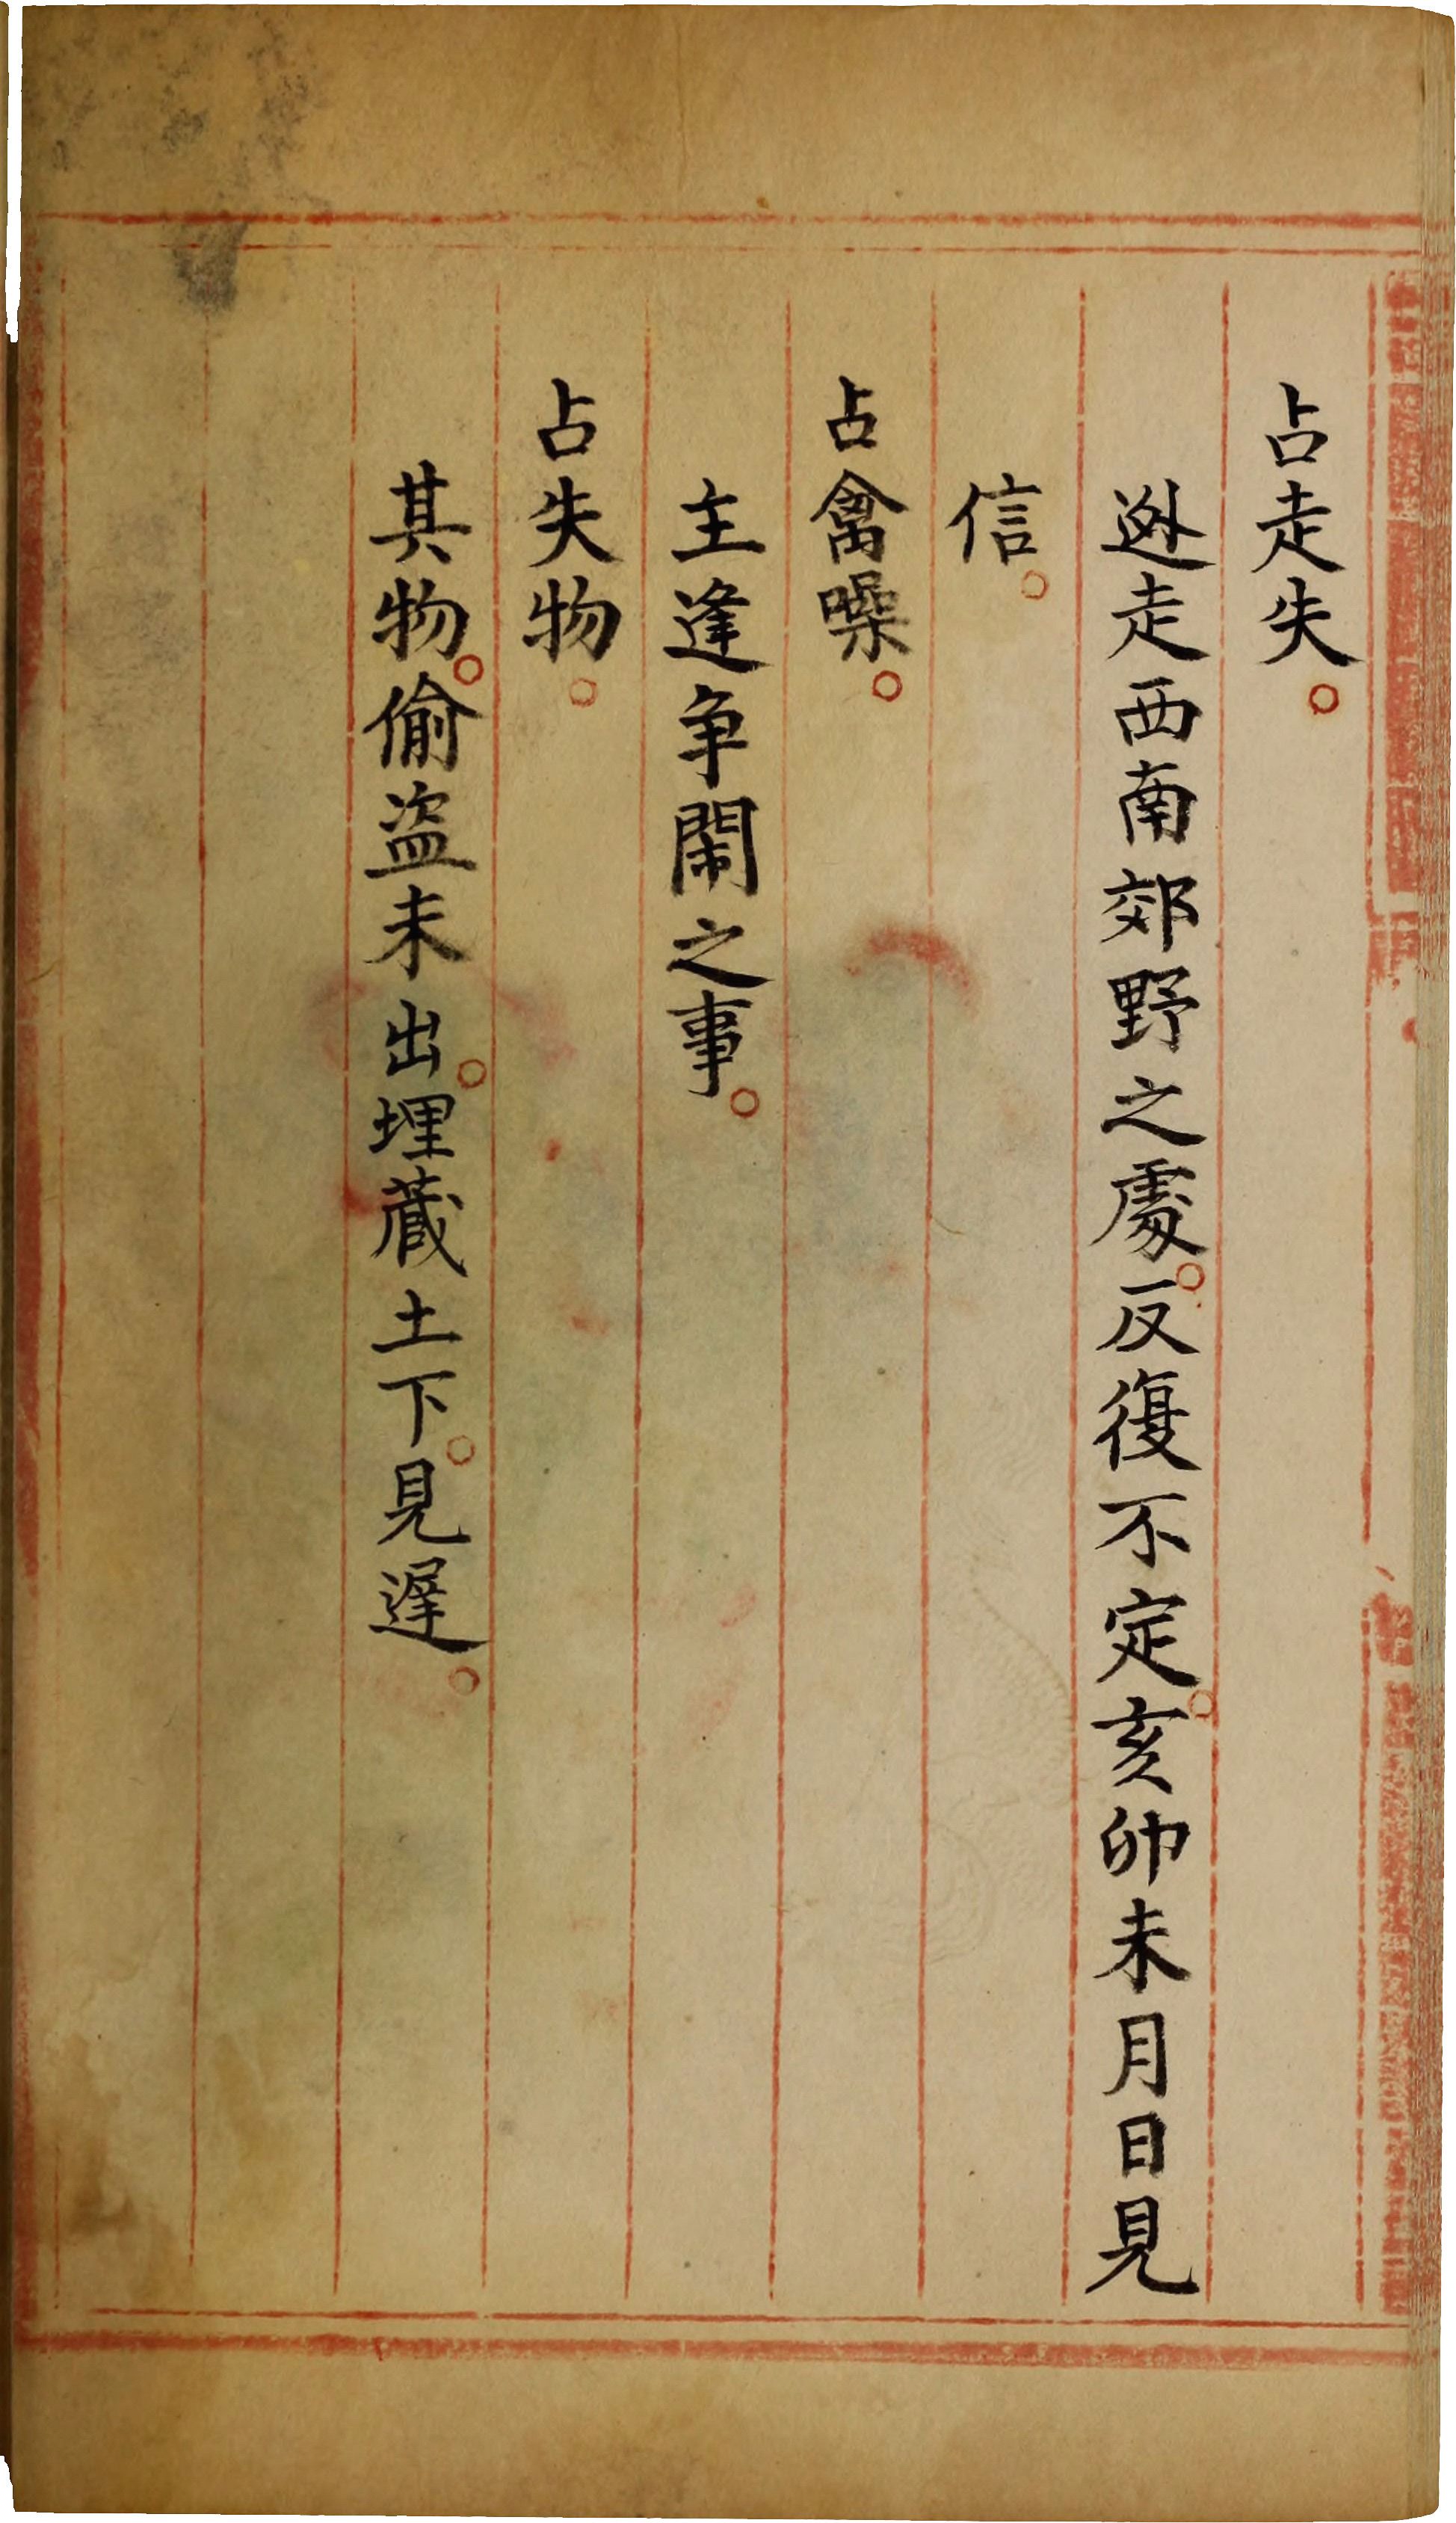 占走失。
逃走西南郊野之處。反復不定。亥卯未月日見
信。
占禽噪。
主逢争鬧之事。
占失物。
其物。偷盗未出。埋藏土下。見遲。